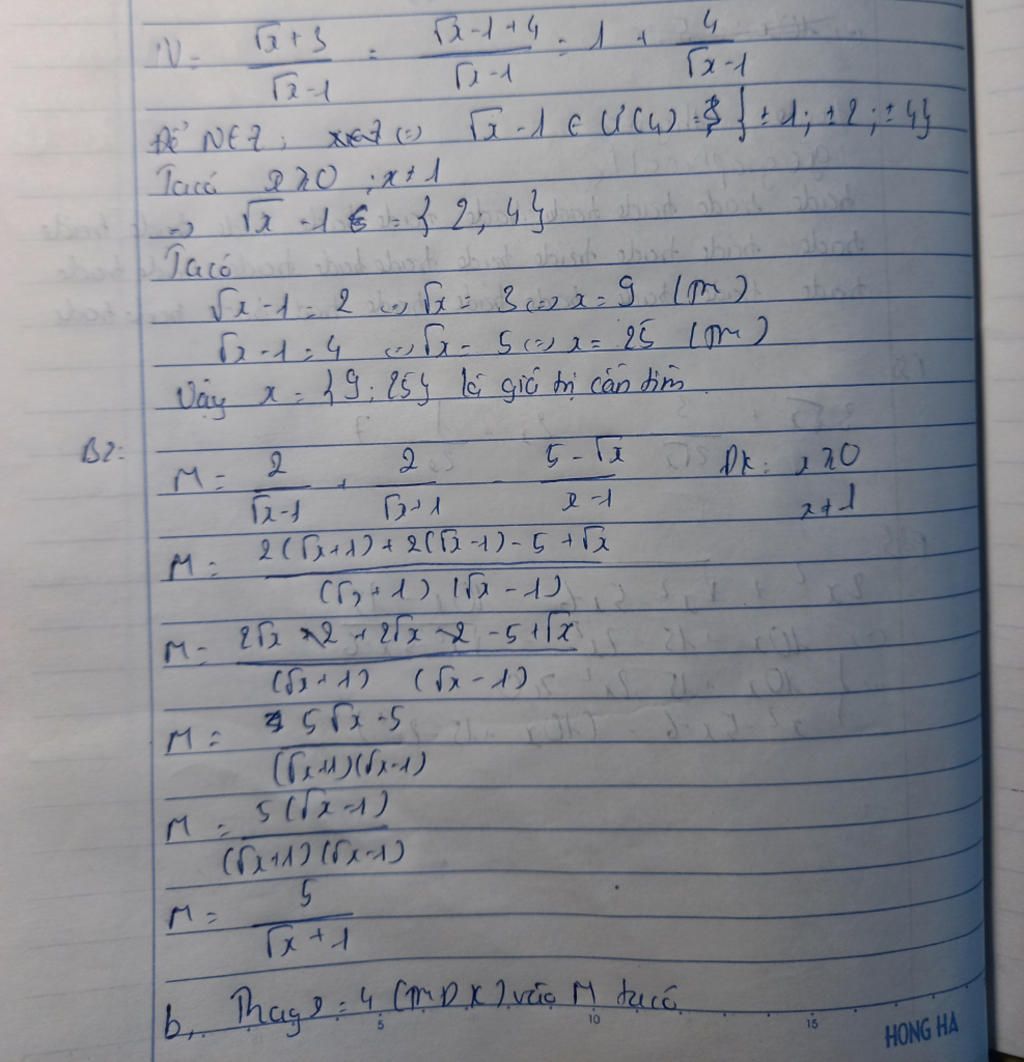 N = (√x + 3)/(√x - 1) = (√x - 1 + 4)/(√x - 1) = 1 + 4/(√x - 1)
Để N∈Z ; x∈Z <=> √x - 1 ∈ Ư(4) = { ±1; ±2; ±4}
Ta có x ≥ 0 ; x ≠ 1
=> √x - 1 = { 2, 4 }
Ta có
√x - 1 = 2 <=> √x = 3 <=> x = 9 (tm)
√x - 1 = 4 <=> √x = 5 <=> x = 25 (tm)
Vậy x = { 9 ; 25} là giá trị cần tìm
B2:
M = 2/(√x - 1) + 2/(√x + 1) - (5 - √x)/(x - 1) ĐK: x ≥ 0
x ≠ 1
M = (2(√x + 1) + 2(√x - 1) - 5 + √x)/((√x + 1)(√x - 1))
M = (2√x + 2 + 2√x - 2 - 5 + √x)/((√x + 1) (√x - 1))
M = (5√x - 5)/((√x + 1)(√x - 1))
M = 5(√x - 1)/((√x + 1)(√x - 1))
M = 5/(√x + 1)
b, Thay x = 4 (TMĐK) vào M ta có
5 10 15
HONG HA